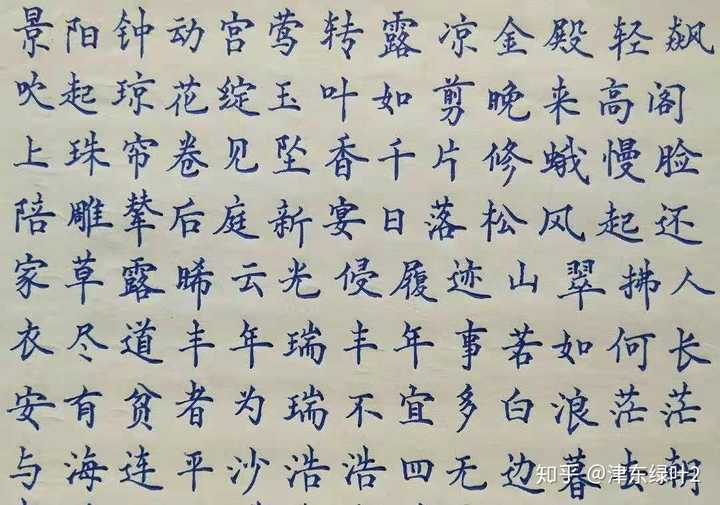 景阳钟动宫莺转露凉金殿轻飙
吹起琼花绽玉叶如剪晚来高阁
上珠帘卷见坠香千片修蛾慢脸
陪雕辇后庭新宴日落松风起还
家草露晞云光侵履迹山翠拂人
衣尽道丰年瑞丰年事若如何长
安有贫者为瑞不宜多白浪茫茫
与海连平沙浩浩四无边暮去朝
知乎 @津东绿叶2